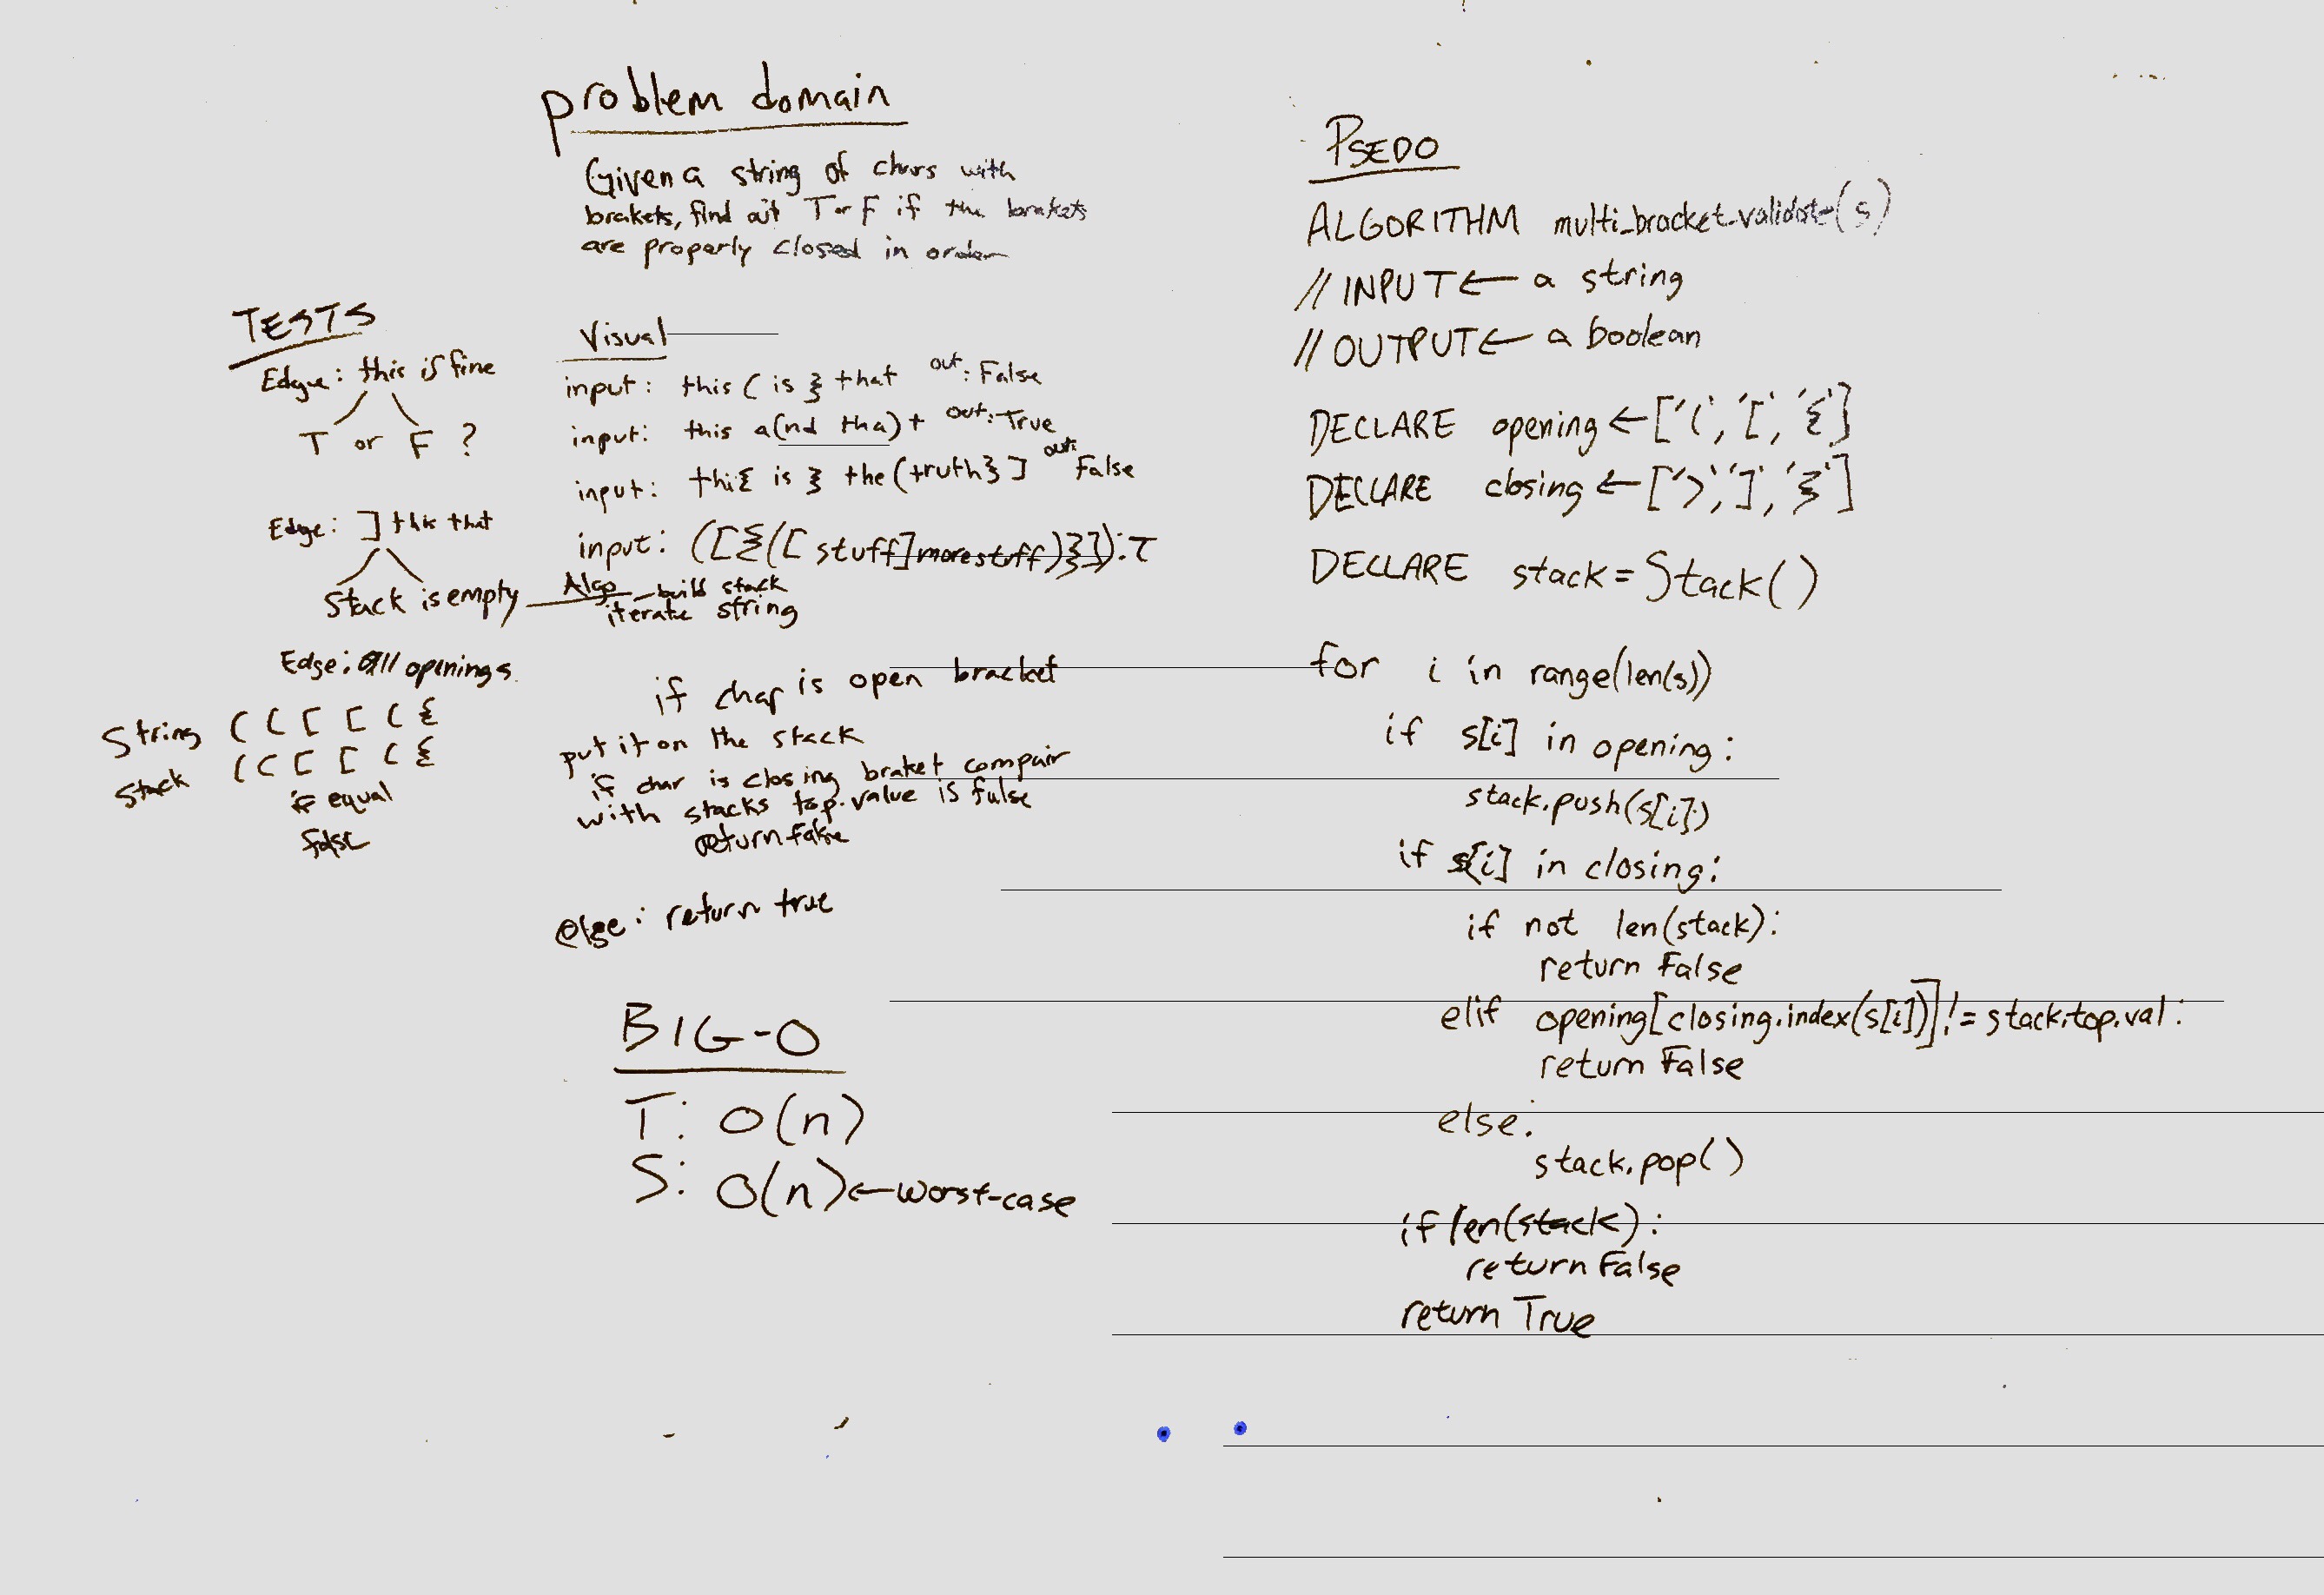 problem domain
Given a string of chars with
brakets, find out T or F if the brakets
are properly closed in order
TESTS
Edge: this is fine
T or F ?
Edge: ] this that
Stack is empty
Edge: All openings
String ( ( [ [ ( {
Stack ( ( [ [ ( {
if equal
false
Visual
input: this ( is } that out: False
input: this a(nd tha)t out: True
input: thi{ is } the (truth}] out: False
input: ([{([stuff]morestuff)}]):T
Algo - build stack
iterate string
if char is open bracket
put it on the stack
if char is closing braket compair
with stacks top.value is false
return false
else: return true
BIG-O
T: O(n)
S: O(n) ← worst-case
PSEDO
ALGORITHM multi_bracket_validate(s)
// INPUT ← a string
// OUTPUT ← a boolean
DECLARE opening ← ['(', '[', '{']
DECLARE closing ← [')', ']', '}']
DECLARE stack = Stack()
for i in range(len(s))
if s[i] in opening:
stack.push(s[i])
if s[i] in closing:
if not len(stack):
return False
elif opening[closing.index(s[i])] != stack.top.val:
return False
else:
stack.pop()
if len(stack):
return False
return True